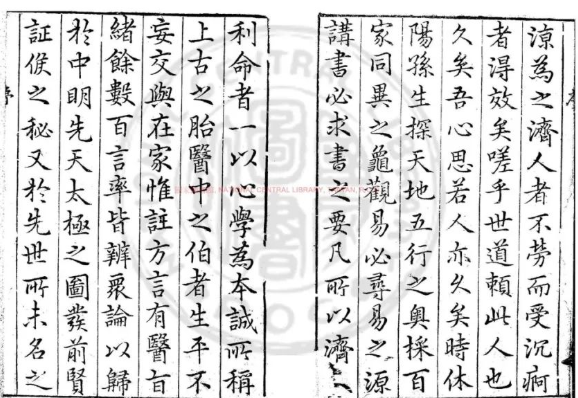 涼為之濟人者不劳而受沉痾
者淂效矣嗟乎世道頼此人也
久矣吾心思若人亦久矣時休
陽孫生探天地五行之奥採百
家同異之龜觀易必尋易之源
講書必求書之要凡所以濟人
利命者一以心學為本誠所稱
上古之胎醫中之伯者生平不
妄交與在家惟註方言有醫旨
緒餘數百言率皆辨衆論以歸
於中明先天太極之圖發前賢
証候之秘又於先世所未名之
CENTRAL LIBRARY,